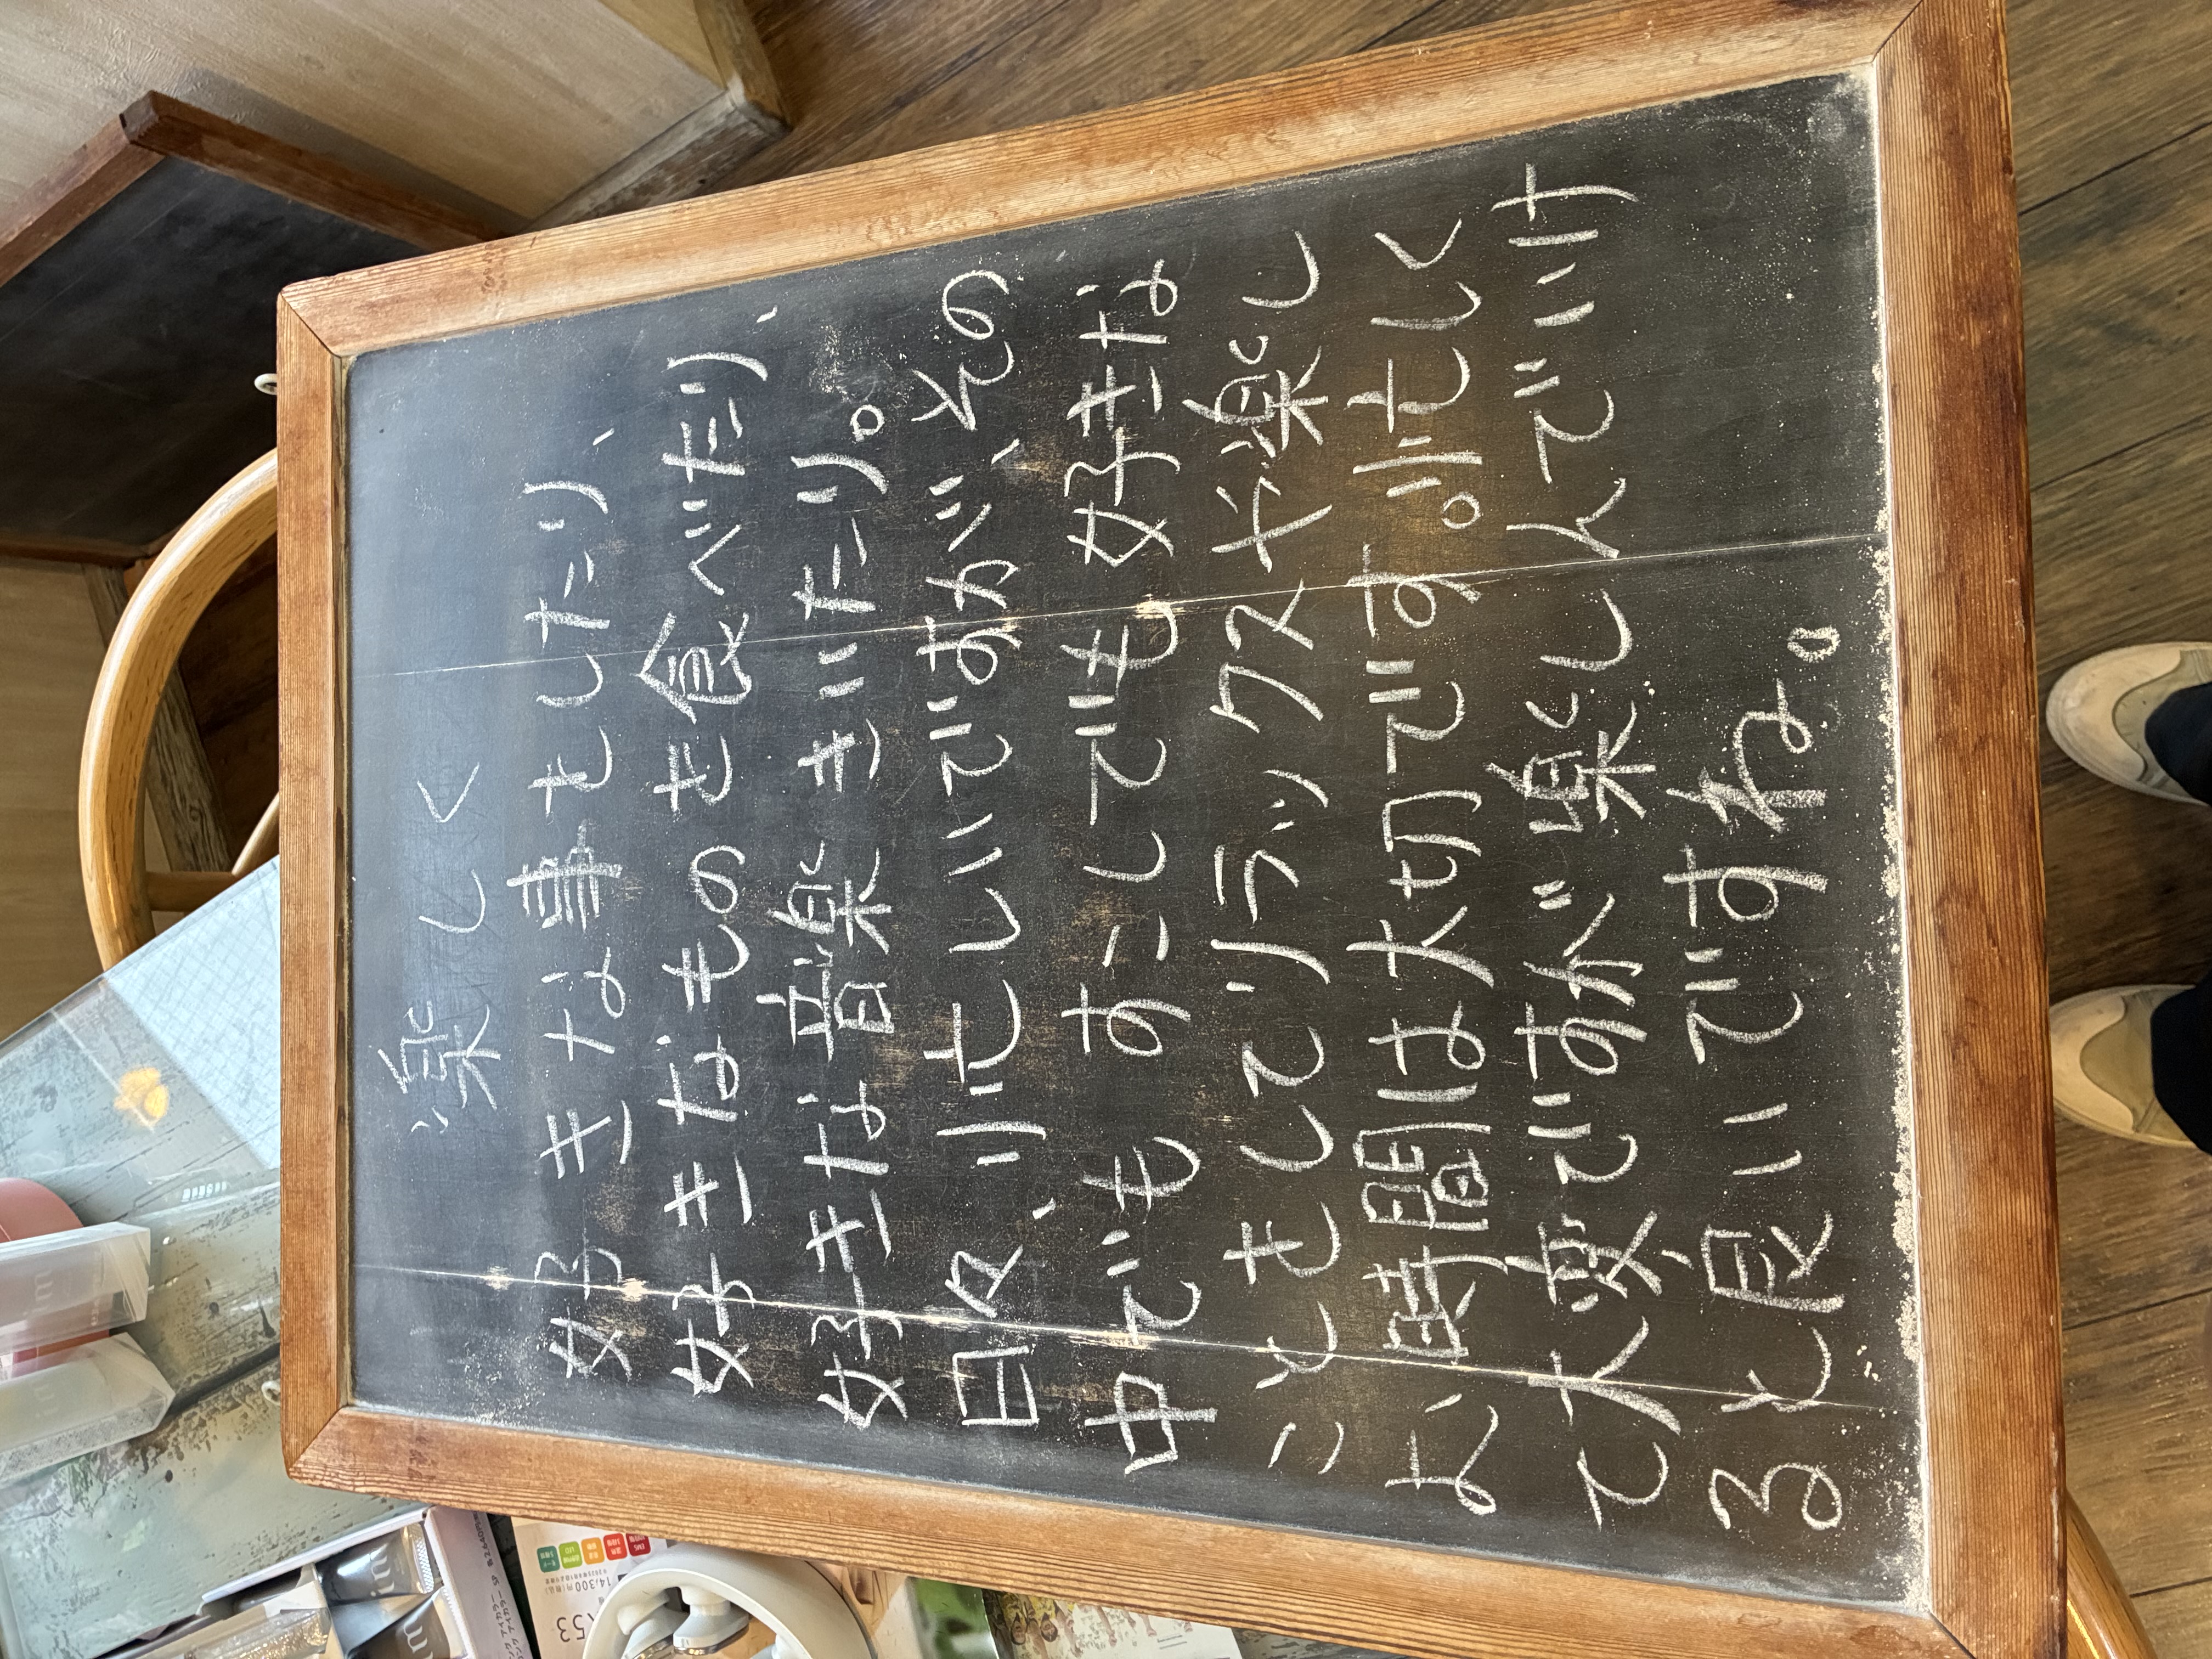 楽しく
好きな事をしたり、
好きなものを食べたり、
好きな音楽きいたり。
日々、忙しいですが、その
中でも すこしでも 好きな
ことをしてリラックス・楽し
む、時間は大切です。忙しく
て大変ですが楽しんでいけ
ると良いですね。
14,300円(税込)
53